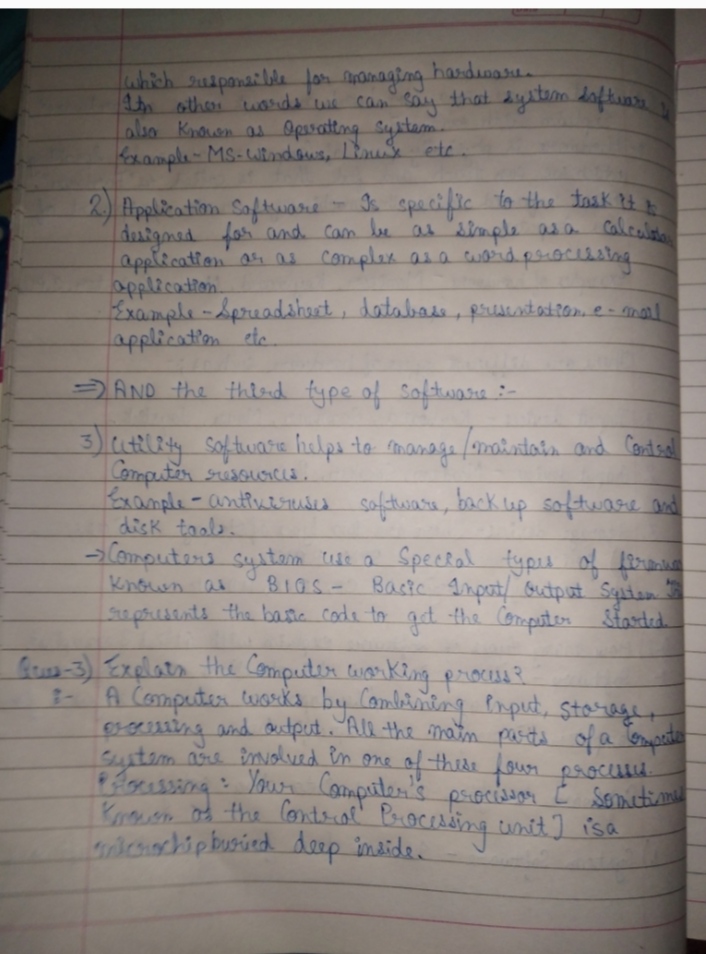 which responsible for managing hardware.
In other words we can say that system software is
also known as Operating system.
Example - MS-Windows, Linux etc.
2) Application Software - Is specific to the task it is
designed for and can be as simple as a calculator
application or as complex as a word processing
application.
Example - Spreadsheet, database, presentation, e-mail
application etc.
⇒ AND the third type of software :-
3) Utility software helps to manage/maintain and Control
Computer resources.
Example - antiviruses software, back up software and
disk tools.
→ Computers system use a Special types of firmware
known as BIOS - Basic Input/ Output System
represents the basic code to get the Computer Started.
Ques-3) Explain the Computer working process?
:- A Computer works by Combining input, storage,
processing and output. All the main parts of a Computer
system are involved in one of these four processes.
Processing : Your Computer's processor [ Sometimes
Known as the Control Processing unit ] is a
microchip buried deep inside.